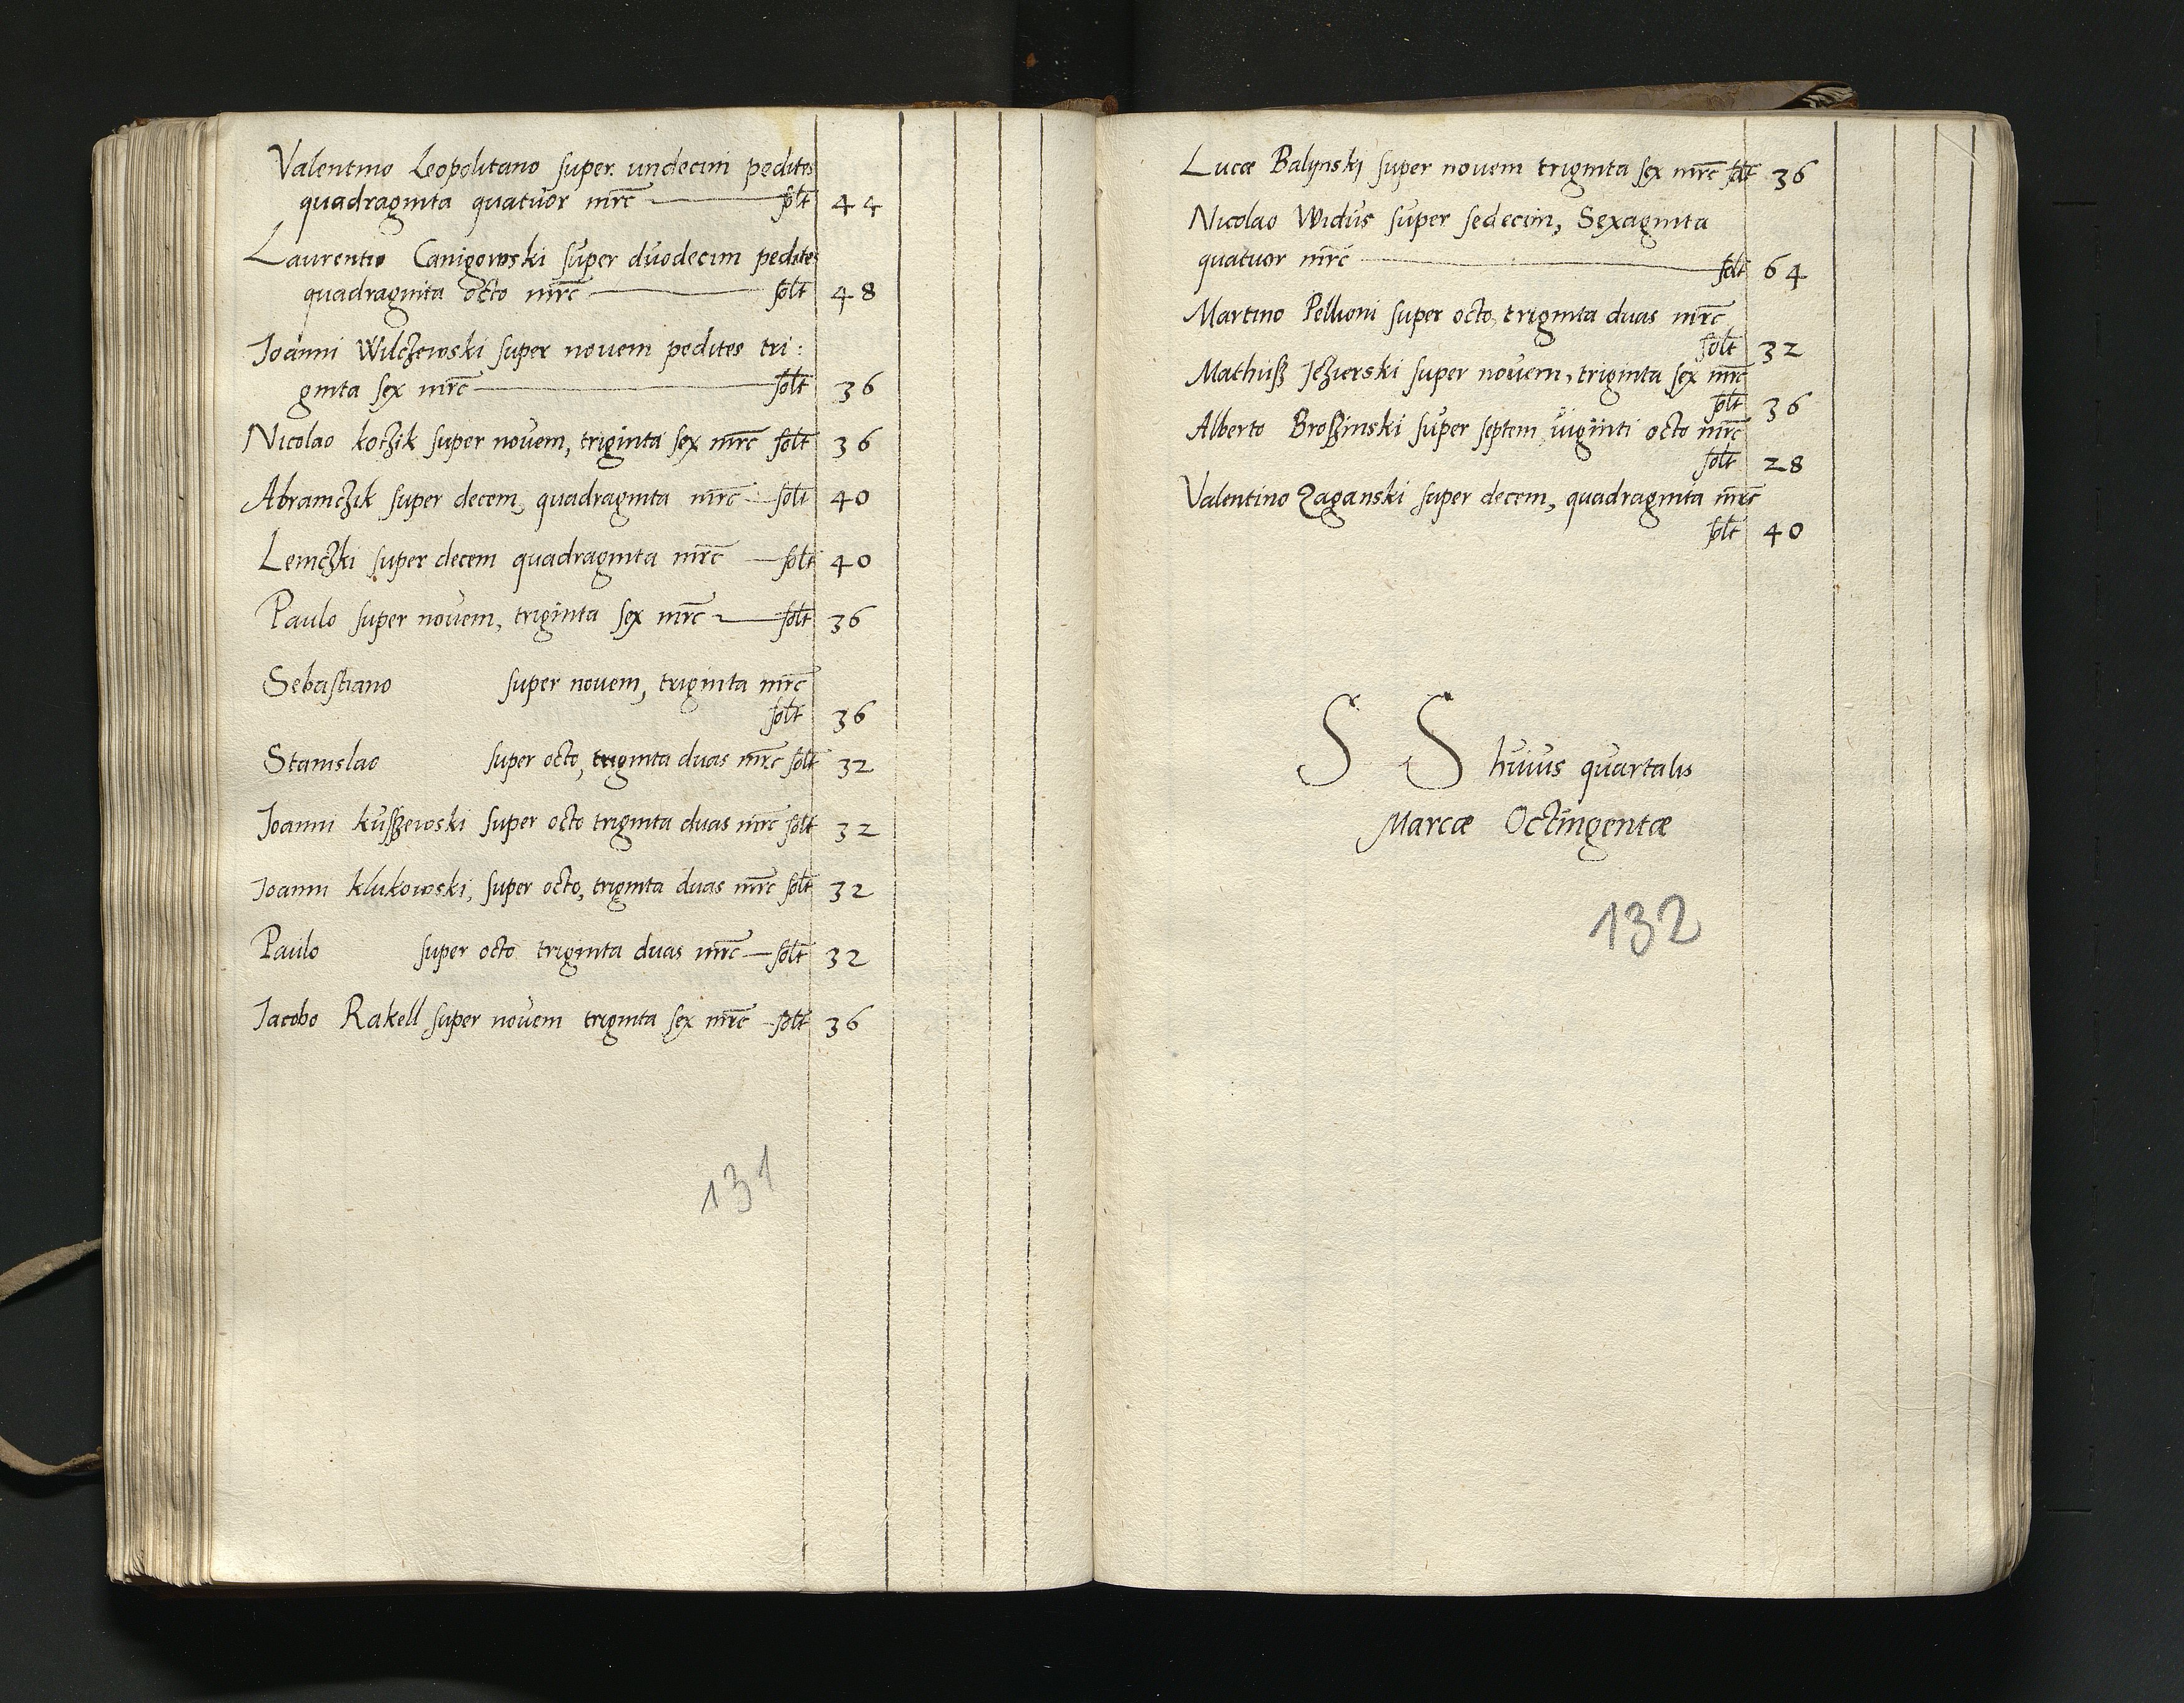 Valentino Leopolitano super undecim pedites
quadraginta quatuor mrc solt 44
Laurentio Canigowski super duodecim pedites
quadraginta octo mrc solt 48
Joanni Wilczewski super novem pedites tri:
ginta sex mrc solt 36
Nicolao kotzik super novem, triginta sex mrc solt 36
Abramczik super decem, quadraginta mrc solt 40
Lemczki super decem quadraginta mrc solt 40
Paulo super novem, triginta sex mrc solt 36
Sebastiano super novem, triginta mrc
solt 36
Stanislao super octo, triginta duas mrc solt 32
Joanni kusszewski super octo triginta duas mrc solt 32
Joanni klukowski, super octo, triginta duas mrc solt 32
Paulo super octo triginta duas mrc solt 32
Jacobo Rakell super novem triginta sex mrc solt 36
131
Lucæ Balynski super novem triginta sex mrc solt 36
Nicolao Widus super sedecim, Sexaginta
quatuor mrc solt 64
Martino Pellioni super octo, triginta duas mrc
solt 32
Mathiß Jezierski super novem, triginta sex mrc
solt 36
Alberto Broßinski super septem viginti octo mrc
solt 28
Valentino Zaganski super decem, quadraginta mrc
solt 40
S S huius quartalis
Marcæ Octingentæ
132